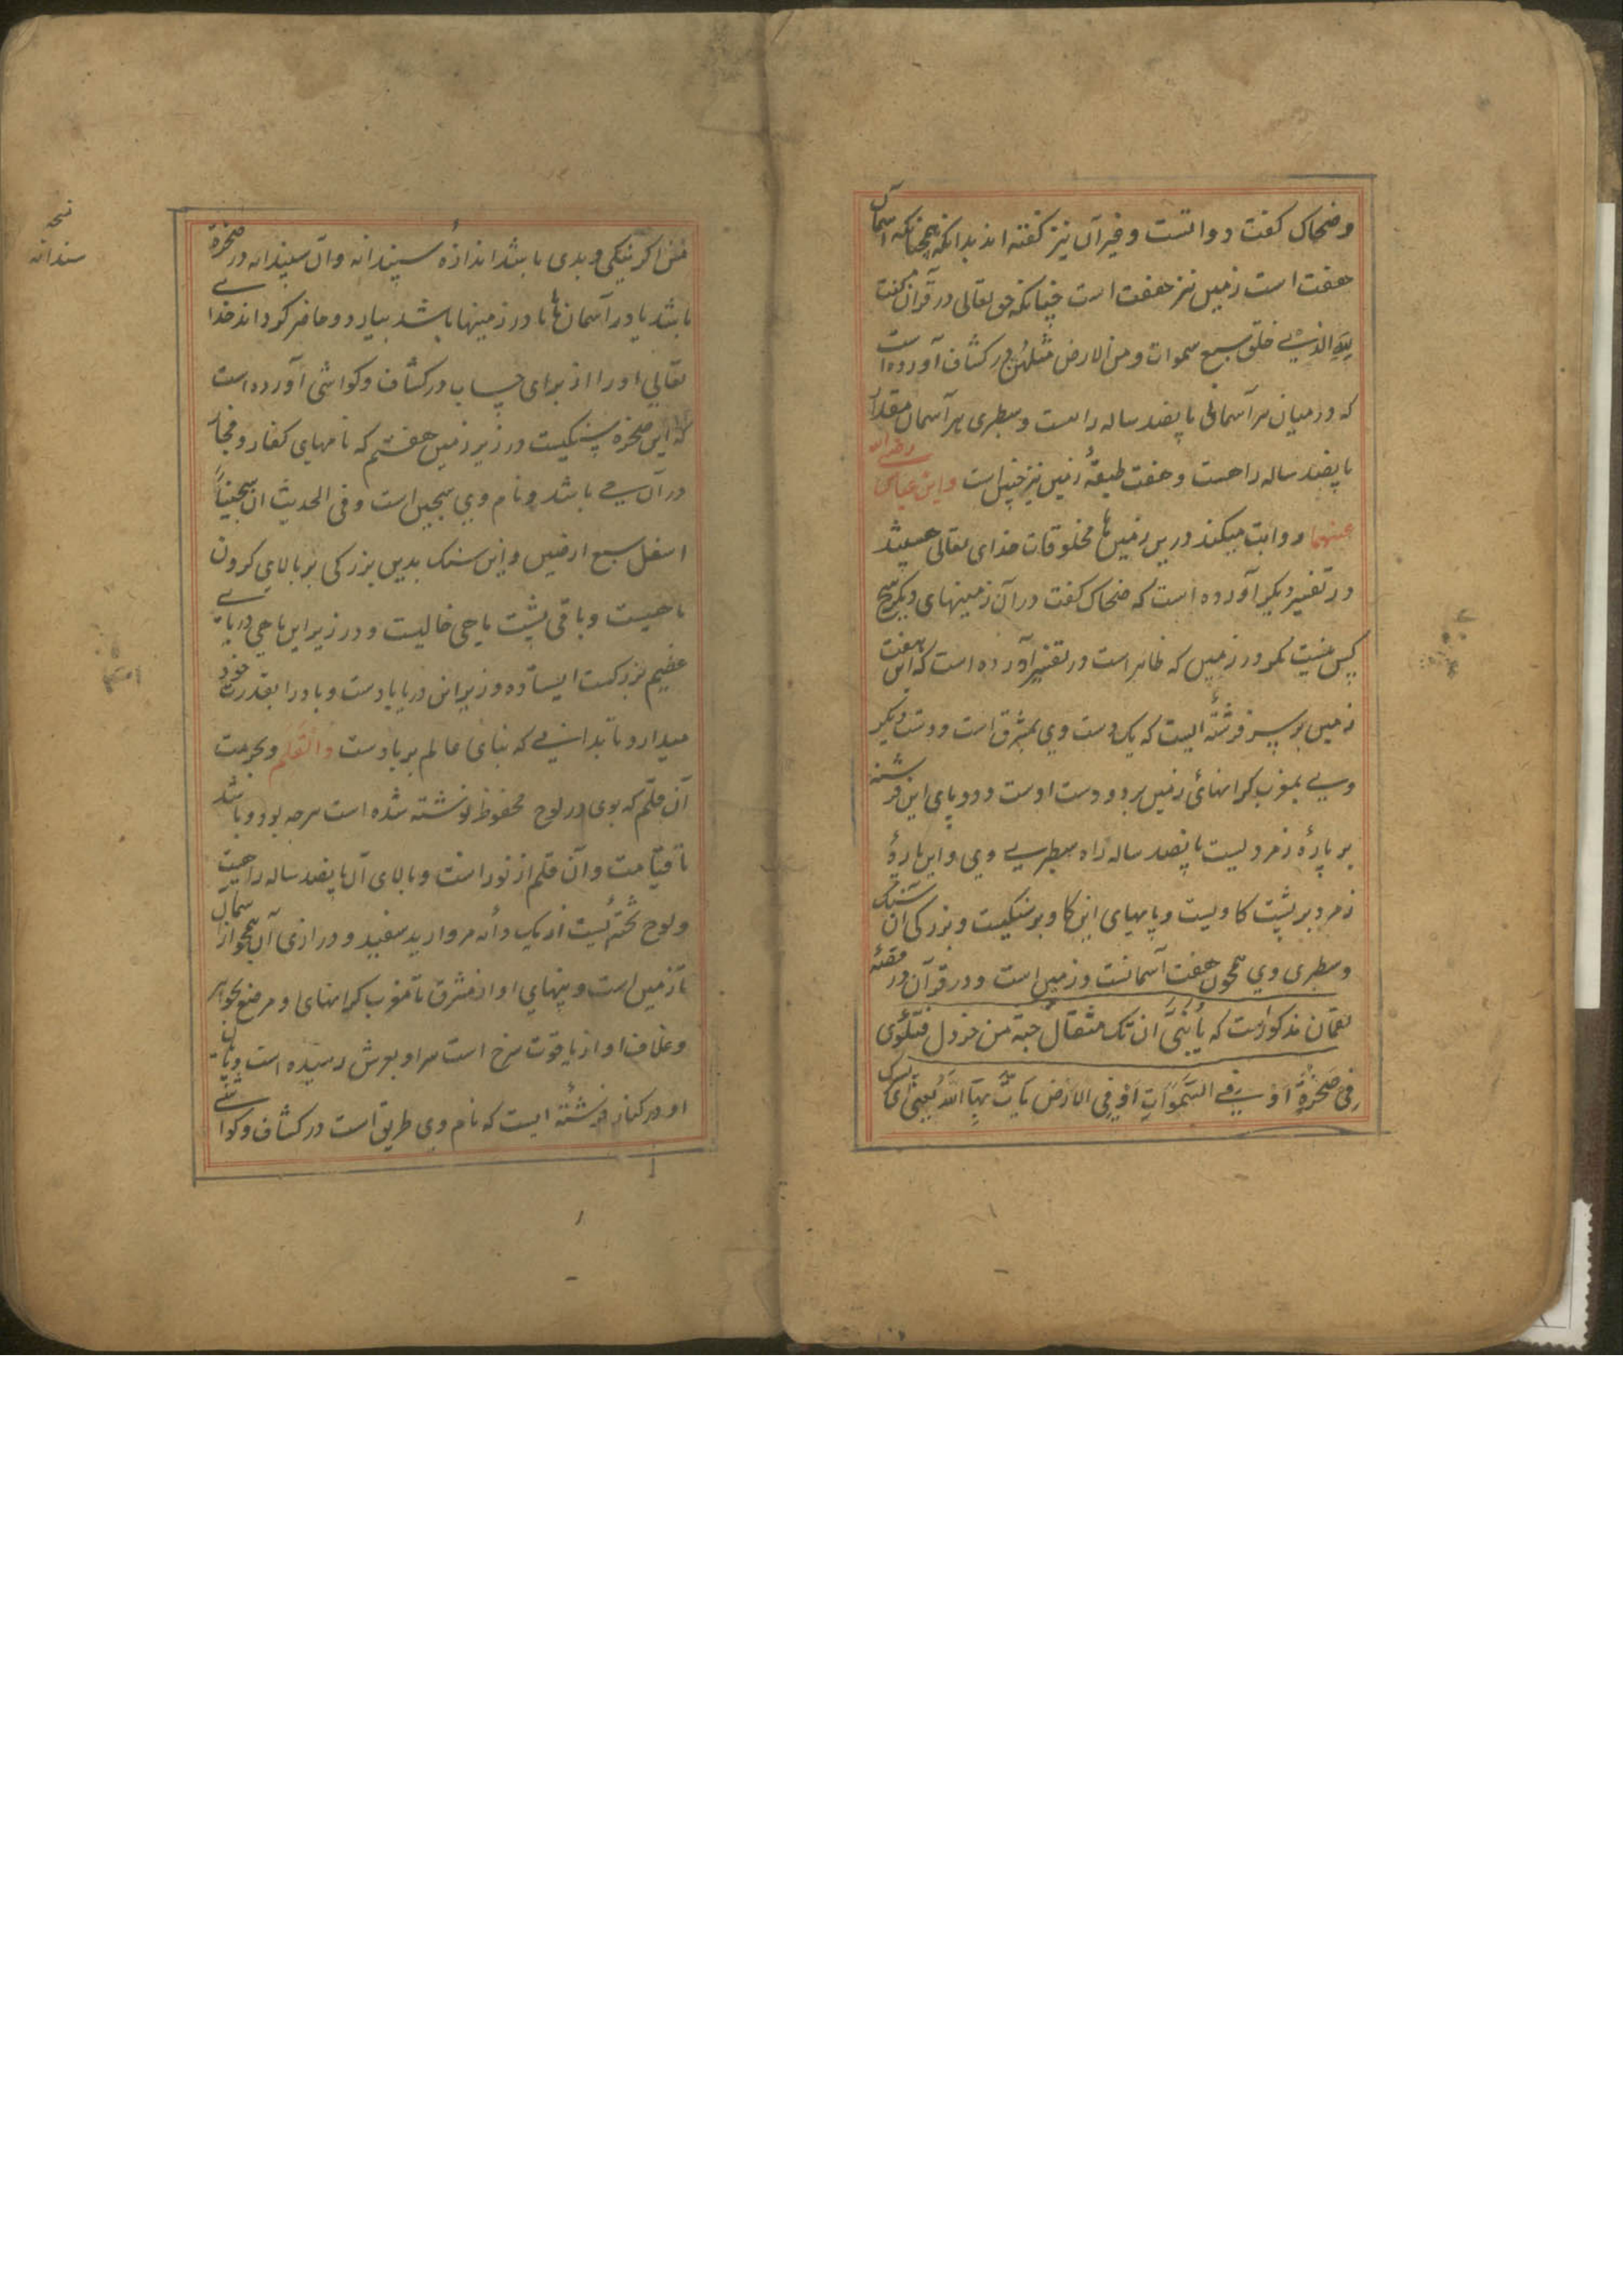 وضحاک کفت دواتست وغیرآن نیز کفته اند بدانکه همچنانکه آسمان
هفت است زمین نیز هفت است چنانکه حق تعالی در قرآن کفت
الله الذی خلق سبع سموات ومن الارض مثلهن در کشاف آورده است
که در میان هر آسمانی پانصد ساله راهست وسطبری هر آسمان مقدار
پانصد ساله راهست وهفت طبقهٔ زمین نیز چنین است وابن عباس رضی الله
عنهما روایت میکند درین زمین ها مخلوقات خدای تعالی هستند
ودر تفسیر دیکر آورده است که ضحاک کفت در آن زمینهای دیکر هیچ
کس نیست مکر در زمین که ظاهر است ودر تفسیر آورده است که این هفت
زمین بر سر فرشتهٔ ایست که یک دست وی بمشرق است ودست دیکر
وی بمغرب کرانهای زمین بر دو دست اوست ودو پای این فرشته
بر پارهٔ زمردیست پانصد ساله راه سطبری وی واین پارهٔ
زمرد بر پشت کاویست وپایهای این کاو بر سنکیست وبزرکی آن سنک
وسطبری وی همچون هفت آسمانست وزمین است ودر قرآن در قصهٔ
لقمان مذکور است که یا بنی ان تک مثقال حبة من خردل فتکن
فی صخرة او فی السموات او فی الارض یات بها الله یعنی ای پسرک
من اکر نیکی وبدی باشد اندازهٔ سپندانه وآن سپندانه در صخرهٔ
باشد یا در آسمان ها یا در زمینها باشد بیارد وحاضر کرداند خدای
تعالی او را از برای حساب در کشاف وکواشی آورده است
که این صخره سنکیست در زیر زمین هفتم که نامهای کفار وفجار
در آن می باشد ونام وی سجین است وفی الحدیث ان سجیناً
اسفل سبع ارضین واین سنک بدین بزرکی بر بالای کردن
ماهیست وباقی پشت ماهی خالیست ودر زیر این ماهی دریای
عظیم بزرکست ایستاده وزیر این دریا بادست وباد را بقدرت خود
میدارد تا بدانی که بنای عالم بر بادست والقلم وبحرمت
آن قلم که بوی در لوح محفوظ نوشته شده است هرچه بود وباشد
تا قیامت وآن قلم از نور است وبالای آن پانصد ساله راهست
ولوح تخته ئیست از یک دانه مروارید سفید ودرازی آن همچو از آسمان
تا زمین است وپهنای او از مشرق تا مغرب کرانهای او مرصع بجواهر
وغلاف او از یاقوت سرخ است سر او بعرش رسیده است وپایان
او در کنار فرشتهٔ ایست که نام وی طریق است در کشاف وکواشی
نسخه
سندانه